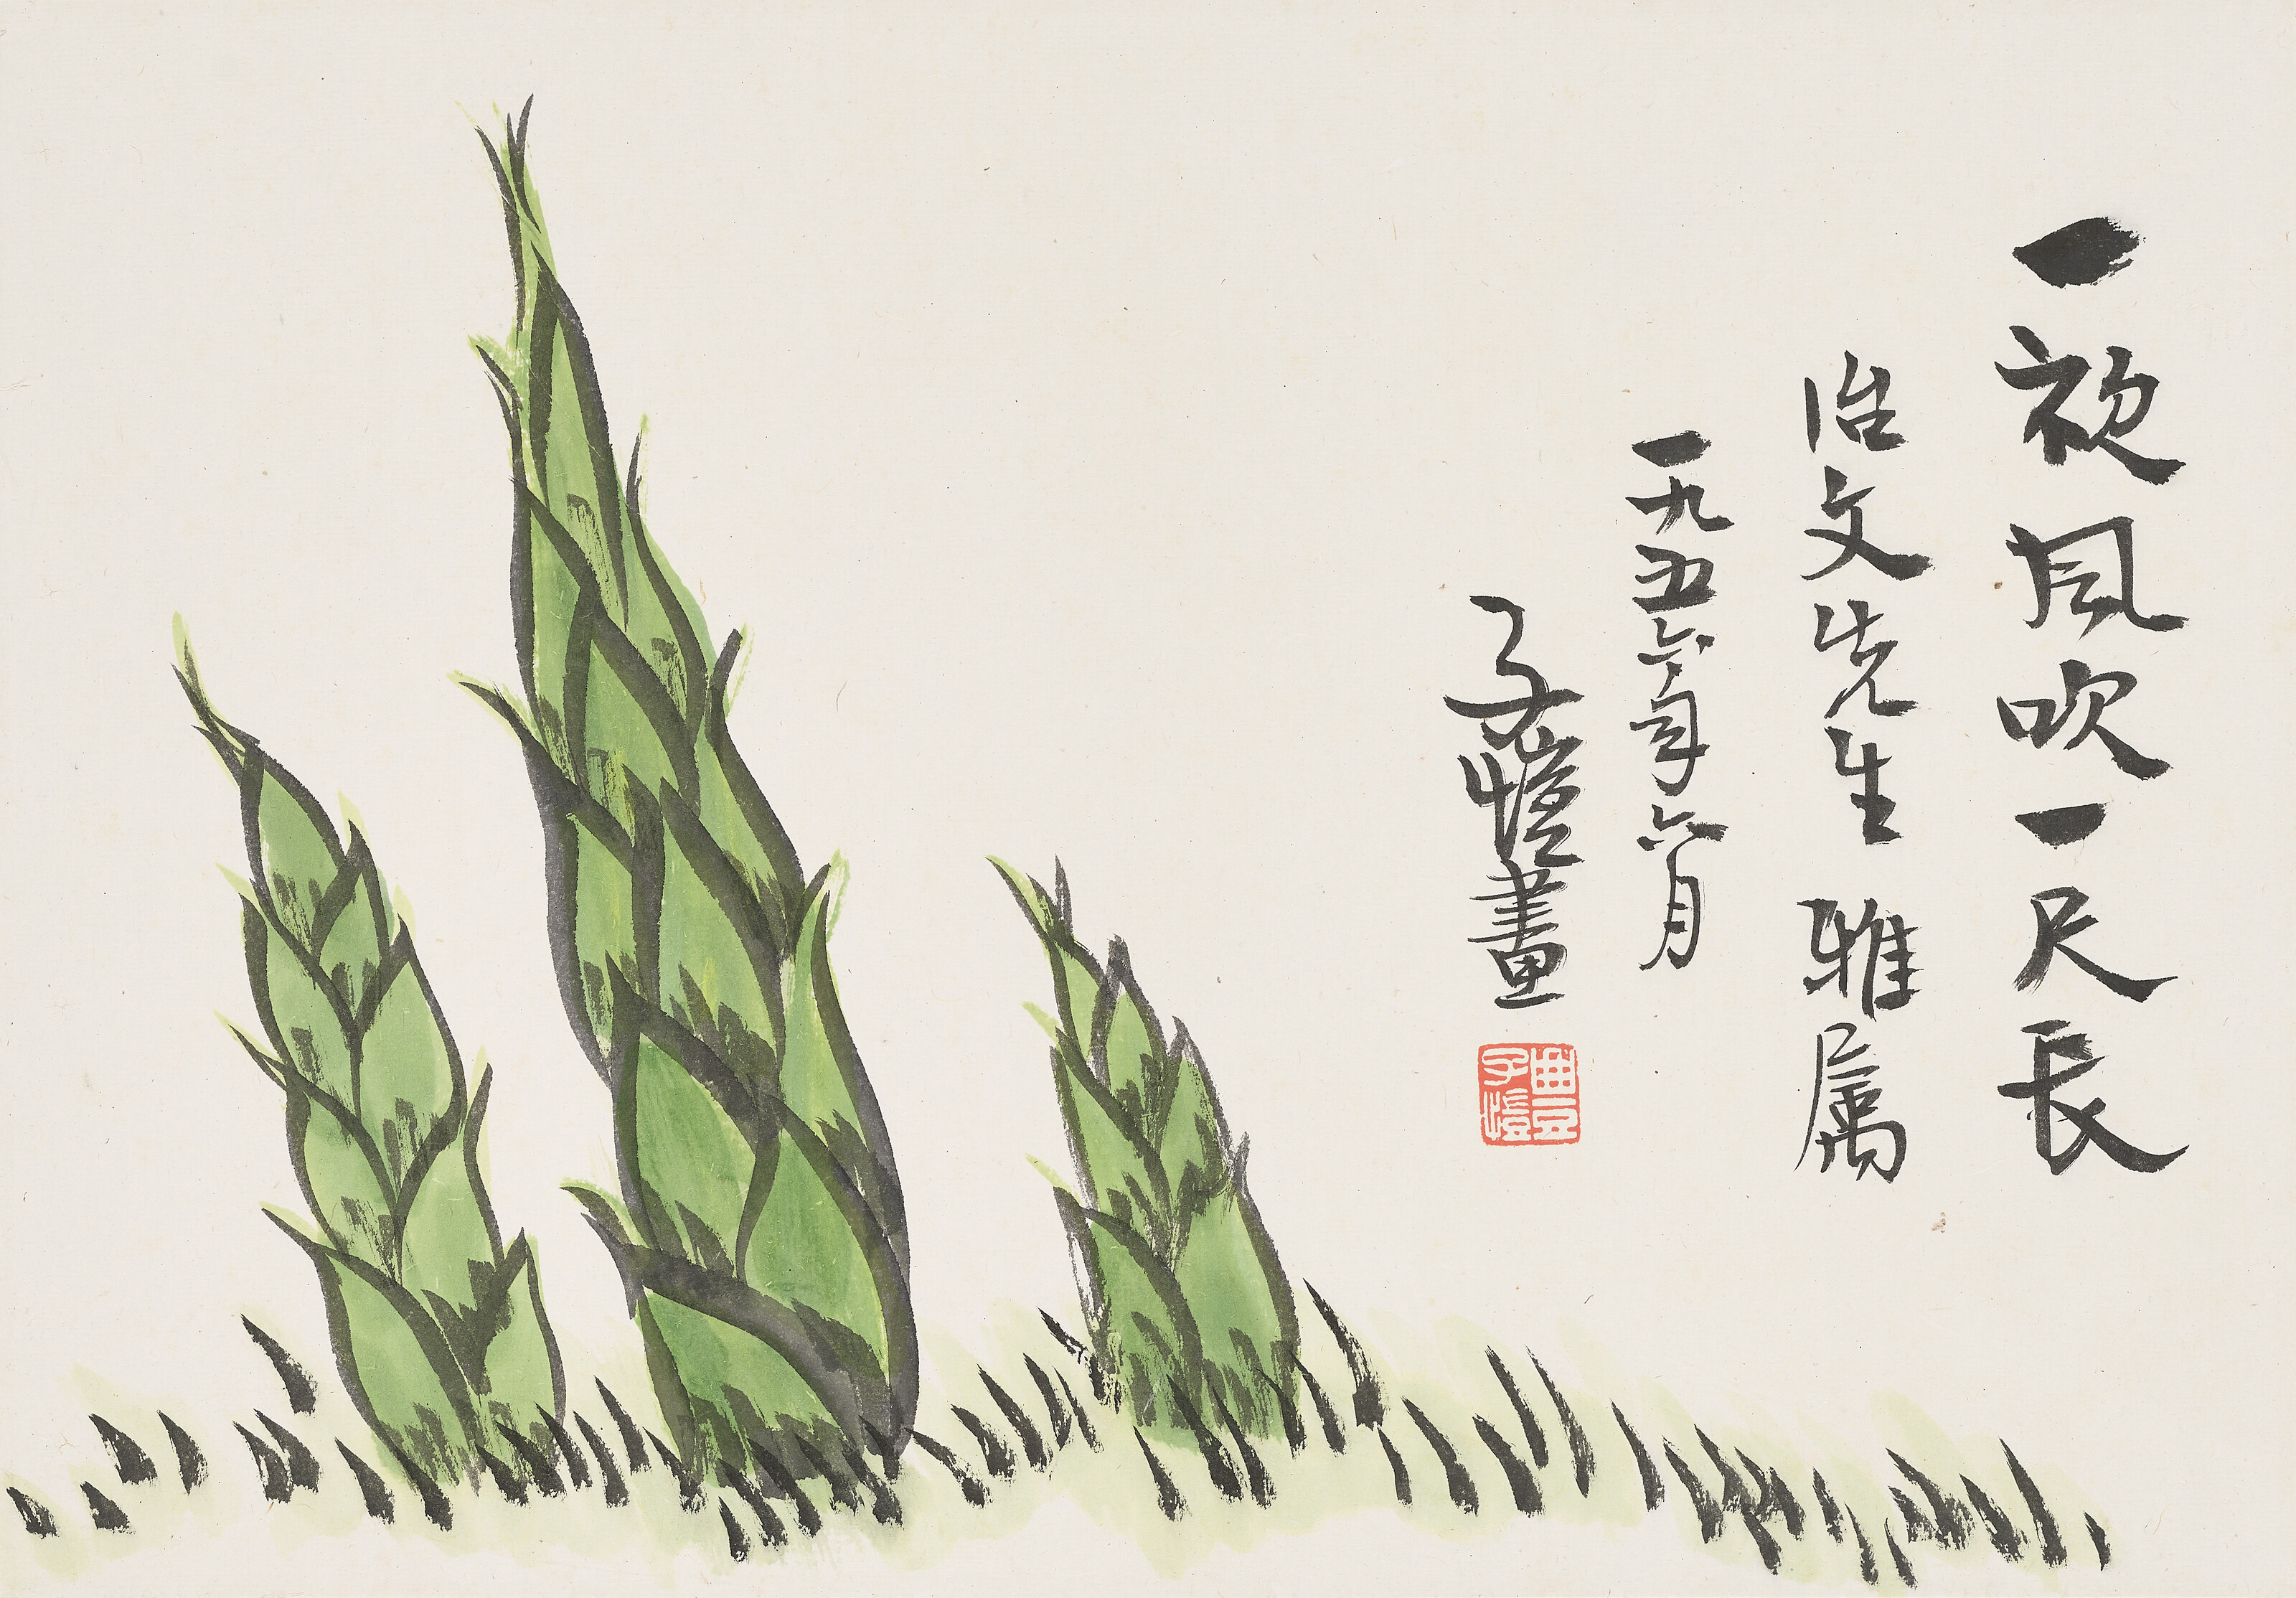 一夜風吹一尺長
治文先生 雅属
一九五六年六月
子愷畫
豐子愷